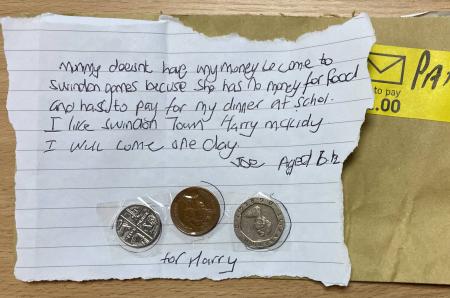 mummy doesnt have any money to come to
swindon games becuse she has no money for food
and hasto pay for my dinner at schol.
I like swindon Town Harry mckirdy
I will come one day.
Joe Aged
for Harry
to pay
.00